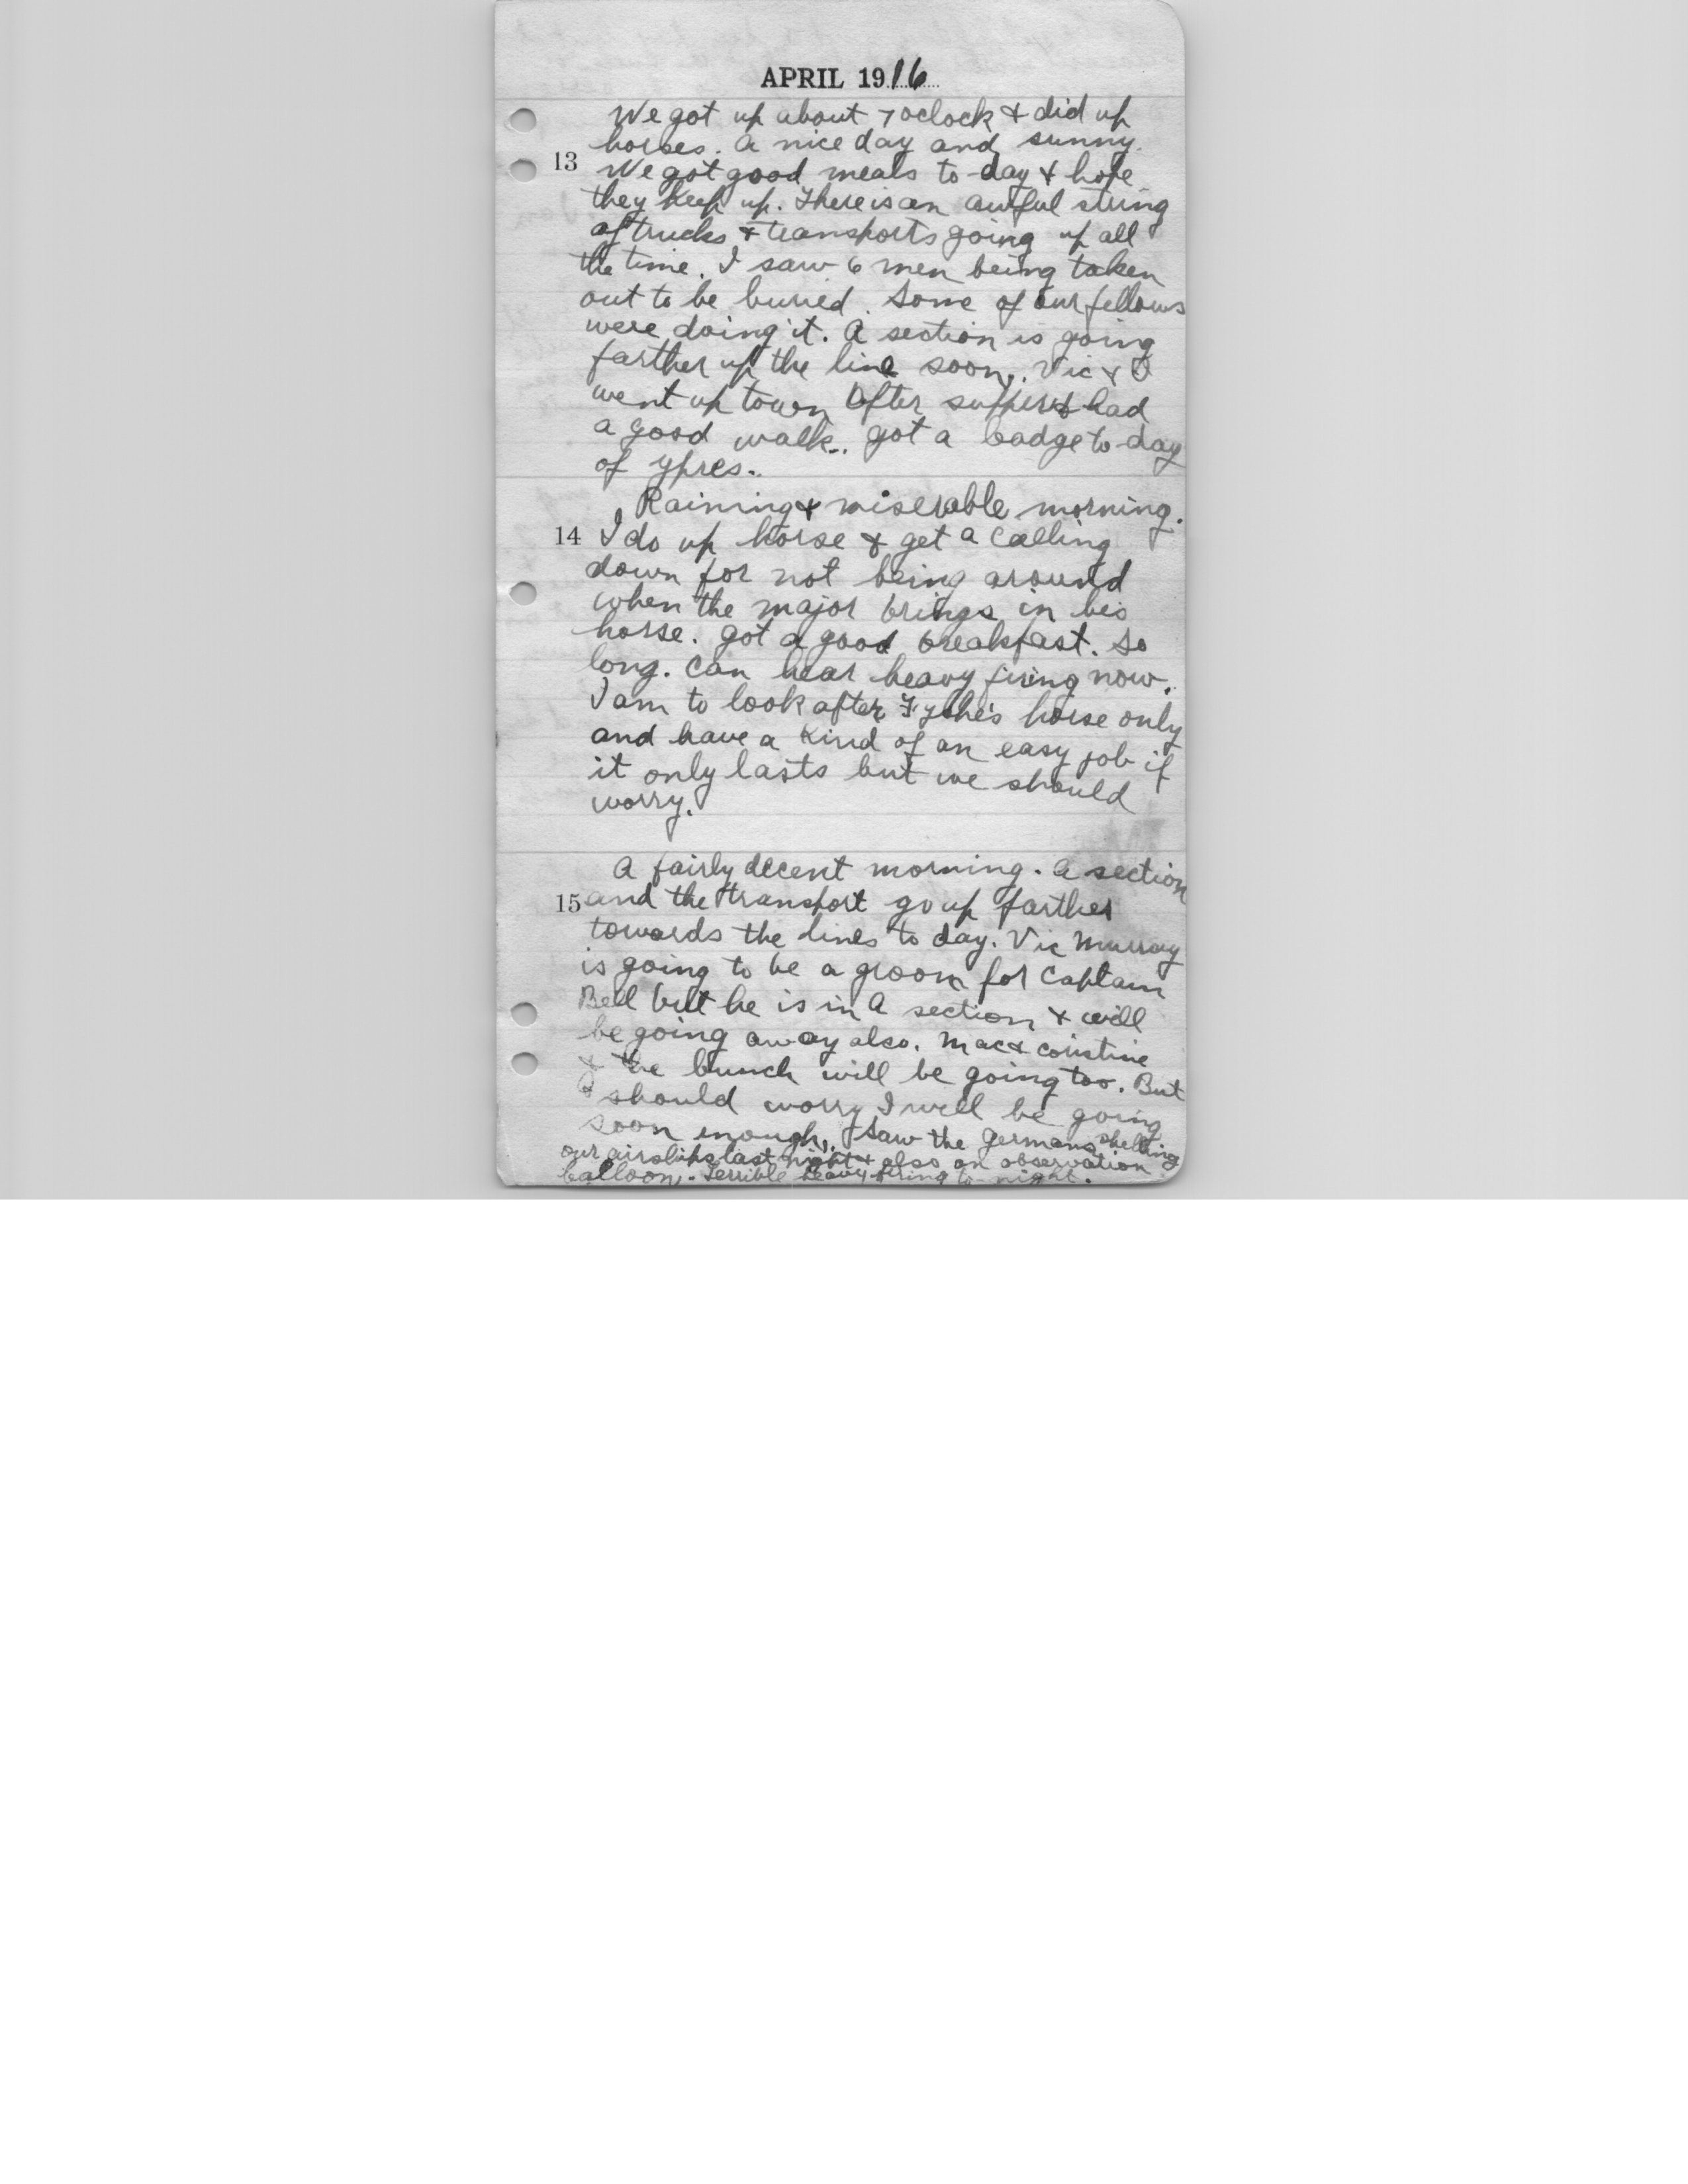 APRIL 1916
We got up about 7 oclock & did up
horses. A nice day and sunny.
13 We got good meals to-day & hope
they keep up. There is an awful string
of trucks & transports going up all
the time. I saw 6 men being taken
out to be buried. Some of our fellows
were doing it. A section is going
farther up the line soon. Vic & I
went up town after supper & had
a good walk. got a badge to-day
of ypres.
Raining & miserable morning.
14 I do up horse & get a calling
down for not being around
when the major brings in his
horse. got a good breakfast. So
long. Can hear heavy firing now.
I am to look after Fyshe's horse only
and have a kind of an easy job if
it only lasts but we should
worry.
A fairly decent morning. A section
15 and the transport go up farther
towards the lines to day. Vic Murray
is going to be a groom for Captain
Bell but he is in A section & will
be going away also. Mac &
& the bunch will be going too. But
I should worry I will be going
soon enough. I saw the germans shelling
our airships last night & also an observation
balloon. Terrible heavy firing to-night.